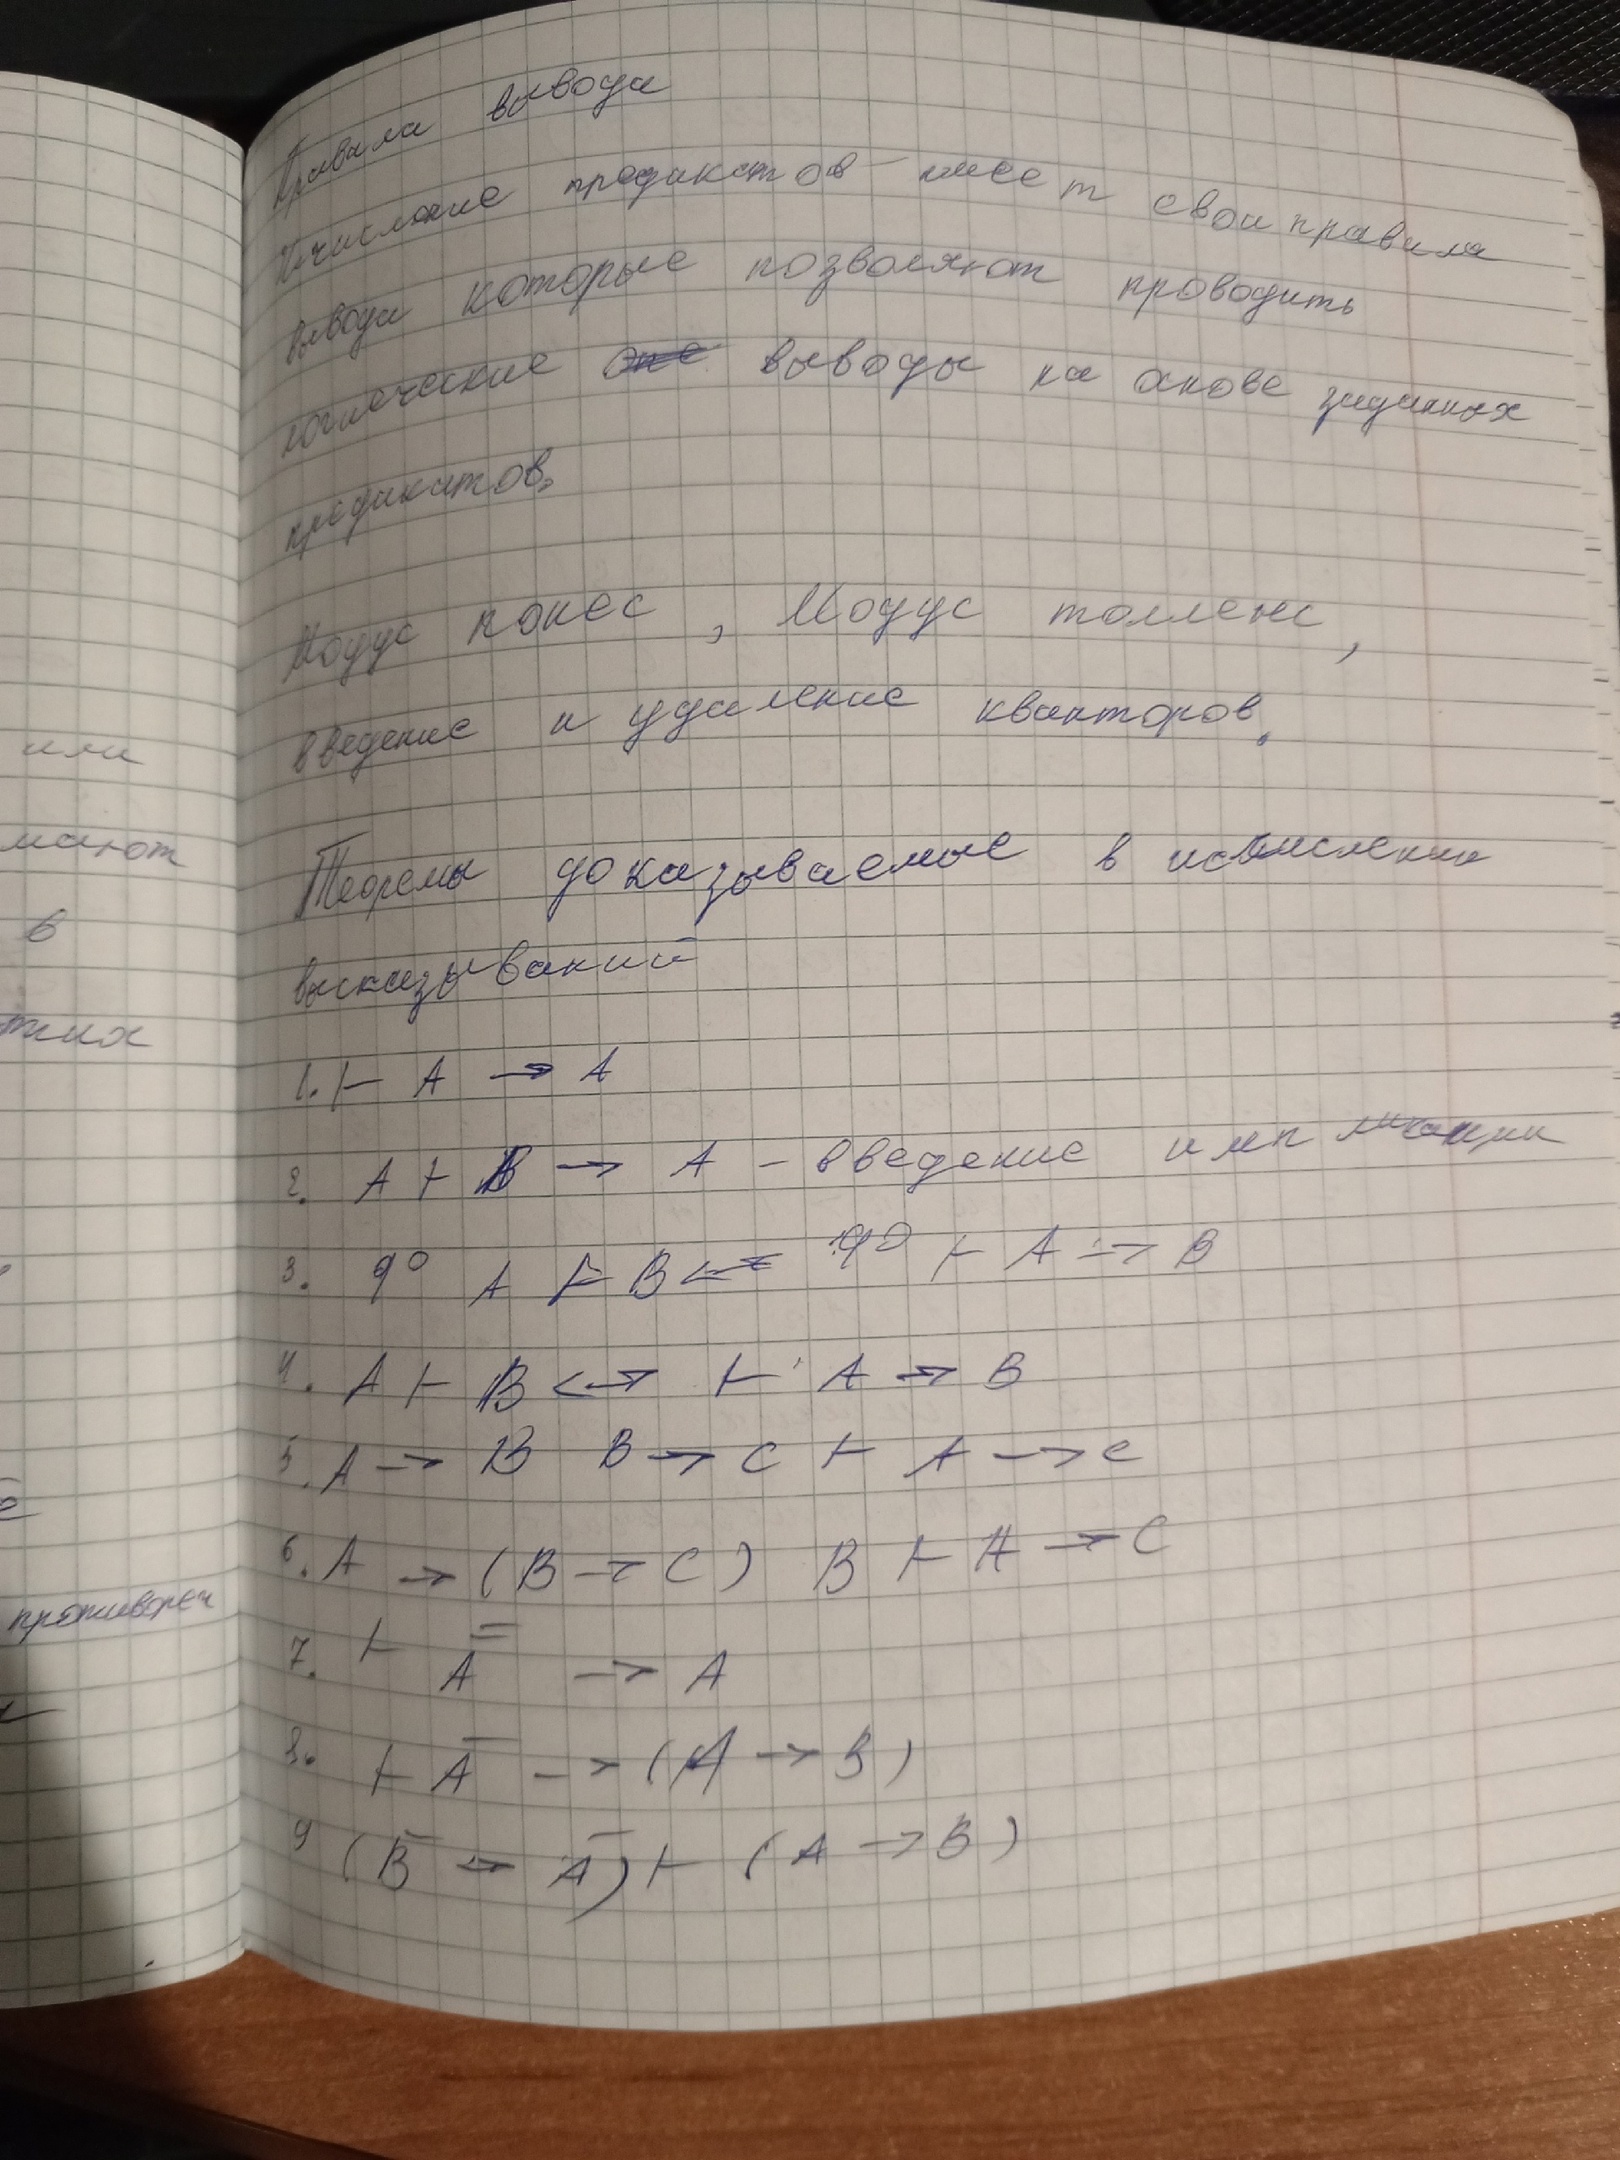 Правила вывода
Ичисление предикатов имеет свои правила
вывода которые позволяют проводить
логические выводы на основе заданных
предикатов.
Модус понес, Модус толленс,
введение и удаление кванторов.
Теоремы доказываемые в исчислении
высказываний
1. ⊢ A → A
2. A ⊢ B → A - введение импликации
3. A ⊢ B ↔ ⊢ A → B
4. A ⊢ B ↔ ⊢ A → B
5. A → B B → C ⊢ A → C
6. A → (B → C) B ⊢ A → C
7. ⊢ A̿ → A
8. ⊢ A̅ → (A → B)
9 (B̅ → A̅) ⊢ (A → B)
или
мают
в
тих
противореч